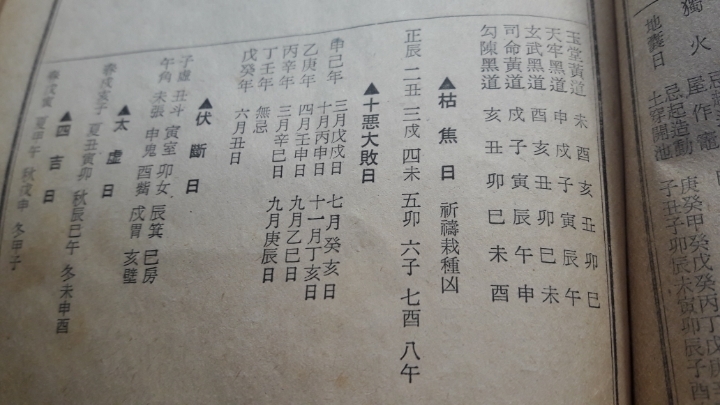 獨火
地囊日
玉堂黃道 未酉亥丑卯巳
天牢黑道 申戌子寅辰午
玄武黑道 酉亥丑卯巳未
司命黃道 戌子寅辰午申
勾陳黑道 亥丑卯巳未酉
▲枯焦日 祈禱栽種凶
正辰 二丑 三戌 四未 五卯 六子 七酉 八午
▲十悪大敗日
甲己年 三月戊戌日 七月癸亥日
十月丙申日 十一月丁亥日
乙庚年 四月壬申日 九月乙巳日
丙辛年 三月辛巳日 九月庚辰日
丁壬年 無忌
戊癸年 六月丑日
▲伏斷日
子虛 丑斗 寅室 卯女 辰箕 巳房
午角 未張 申鬼 酉觜 戌胃 亥壁
▲太虛日
春戌亥子 夏丑寅卯 秋辰巳午 冬未申酉
▲四吉日
春戊寅 夏甲午 秋戊申 冬甲子